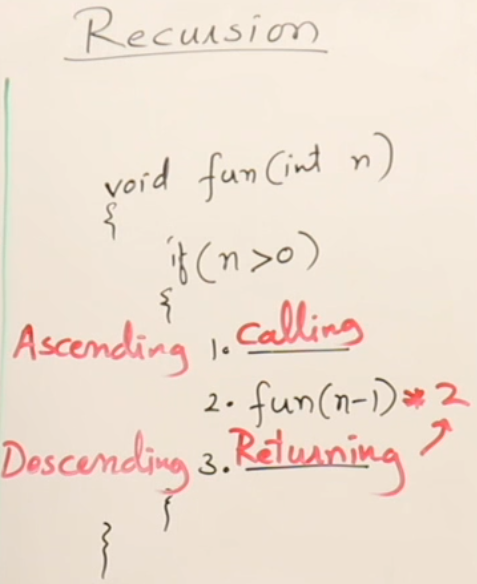 Recursion
void fun(int n)
{
if(n>0)
{
Ascending 1. Calling
2. fun(n-1)*2
Descending 3. Returning
}
}